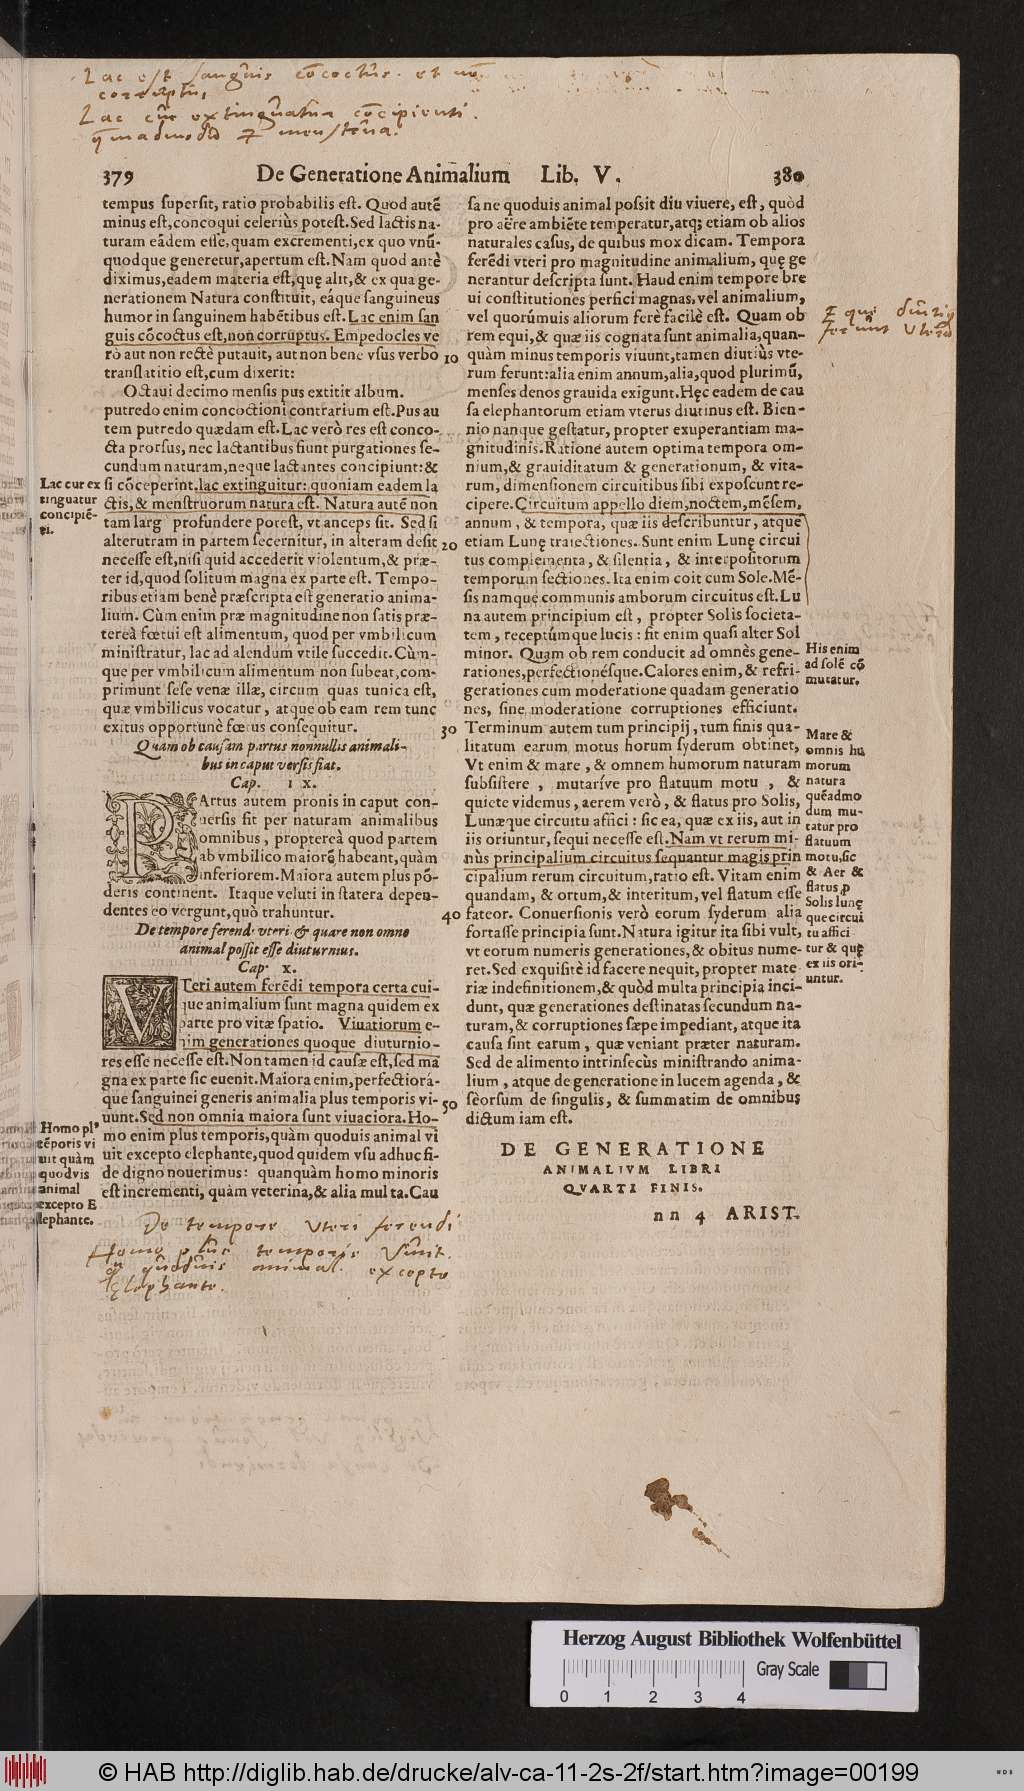 Lac est sanguis cōcoctus. et nō
corruptus
Lac cur extinguatur cōcipienti.
379 De Generatione Animalium Lib. V. 380
tempus supersit, ratio probabilis est. Quod autē
minus est, concoqui celeriùs potest. Sed lactis na-
turam eādem esse, quam excrementi, ex quo vnū-
quodque generetur, apertum est. Nam quod antè
diximus, eadem materia est, quę alit, & ex qua ge-
nerationem Natura constituit, eáque sanguineus
humor in sanguinem habētibus est. Lac enim san
guis cōcoctus est, non corruptus. Empedocles ve
rò aut non rectè putauit, aut non bene vsus verbo
translatitio est, cum dixerit:
Octaui decimo mensis pus extitit album.
putredo enim concoctioni contrarium est. Pus au
tem putredo quædam est. Lac verò res est conco-
cta prorsus, nec lactantibus fiunt purgationes se-
cundum naturam, neque lactantes concipiunt: &
si cōceperint, lac extinguitur: quoniam eadem la
ctis, & menstruorum natura est. Natura autē non
tam larg profundere potest, vt anceps sit. Sed si
alterutram in partem secernitur, in alteram desit
necesse est, nisi quid accederit violentum, & præ-
ter id, quod solitum magna ex parte est. Tempo-
ribus etiam benè præscripta est generatio anima-
lium. Cùm enim præ magnitudine non satis præ-
tereà fœtui est alimentum, quod per vmbilicum
ministratur, lac ad alendum vtile succedit. Cùm-
que per vmbilicum alimentum non subeat, com-
primunt sese venæ illæ, circum quas tunica est,
quæ vmbilicus vocatur, atque ob eam rem tunc
exitus opportunè fœtus consequitur.
Quam ob causam partus nonnullis animali-
bus in caput versis fiat.
Cap. IX.
PArtus autem pronis in caput con-
uersis fit per naturam animalibus
omnibus, proptereà quod partem
ab vmbilico maiorē habeant, quàm
inferiorem. Maiora autem plus pō-
deris continent. Itaque veluti in statera depen-
dentes eo vergunt, quò trahuntur.
De tempore ferendi vteri, & quare non omne
animal possit esse diuturnius.
Cap. X.
VTeri autem ferēdi tempora certa cui-
que animalium sunt magna quidem ex
parte pro vitæ spatio. Viuatiorum e-
nim generationes quoque diuturnio-
res esse necesse est. Non tamen id causæ est, sed ma
gna ex parte sic euenit. Maiora enim, perfectiorá-
que sanguinei generis animalia plus temporis vi-
uunt. Sed non omnia maiora sunt viuaciora. Ho-
mo enim plus temporis, quàm quoduis animal vi
uit excepto elephante, quod quidem vsu adhuc fi-
de digno nouerimus: quanquàm homo minoris
est incrementi, quàm veterina, & alia multa. Cau
Lac cur ex
tinguatur
concipiē-
ti.
Homo pl⁹
tēporis vi
uit quàm
quodvis
animal
excepto E
lephante.
10
20
30
40
50
sa ne quoduis animal possit diu viuere, est, quòd
pro aëre ambiēte temperatur, atq; etiam ob alios
naturales casus, de quibus mox dicam. Tempora
ferēdi vteri pro magnitudine animalium, quę ge
nerantur descripta sunt. Haud enim tempore bre
ui constitutiones persici magnas, vel animalium,
vel quorúmuis aliorum ferè facilè est. Quam ob
rem equi, & quæ iis cognata sunt animalia, quan-
quàm minus temporis viuunt, tamen diutiùs vte-
rum ferunt: alia enim annum, alia, quod plurimū,
menses denos grauida exigunt. Hęc eadem de cau
sa elephantorum etiam vterus diutinus est. Bien-
nio nanque gestatur, propter exuperantiam ma-
gnitudinis. Ratione autem optima tempora om-
nium, & grauiditatum & generationum, & vita-
rum, dimensionem circuitibus sibi exposcunt re-
cipere. Circuitum appello diem, noctem, mēsem,
annum, & tempora, quæ iis describuntur, atque
etiam Lunę traiectiones. Sunt enim Lunę circui
tus complementa, & silentia, & interpositorum
temporum sectiones. Ita enim coit cum Sole. Mē-
sis namque communis amborum circuitus est. Lu
na autem principium est, propter Solis societa-
tem, receptúmque lucis: fit enim quasi alter Sol
minor. Quam ob rem conducit ad omnès gene-
rationes, perfectionésque. Calores enim, & refri-
gerationes cum moderatione quadam generatio
nes, sine moderatione corruptiones efficiunt.
Terminum autem tum principij, tum finis qua-
litatum earum motus horum syderum obtinet,
Vt enim & mare, & omnem humorum naturam
subsistere, mutaríve pro flatuum motu, &
quiete videmus, aerem verò, & flatus pro Solis,
Lunæque circuitu affici: sic ea, quæ ex iis, aut in
iis oriuntur, sequi necesse est. Nam vt rerum mi-
nùs principalium circuitus sequantur magis prin
cipalium rerum circuitum, ratio est. Vitam enim
quandam, & ortum, & interitum, vel flatum esse
fateor. Conuersionis verò eorum syderum alia
fortasse principia sunt. Natura igitur ita sibi vult,
vt eorum numeris generationes, & obitus nume-
ret. Sed exquisitè id facere nequit, propter mate
riæ indefinitionem, & quòd multa principia inci-
dunt, quæ generationes destinatas secundum na-
turam, & corruptiones sæpe impediant, atque ita
causa sint earum, quæ veniant præter naturam.
Sed de alimento intrinsecùs ministrando anima-
lium, atque de generatione in lucem agenda, &
sèorsùm de singulis, & summatim de omnibus
dictum iam est.
DE GENERATIONE
ANIMALIVM LIBRI
QVARTI FINIS.
nn 4 ARIST.
Equi diutiꝰ
ferunt Uterū
His enim
ad solē cō
mutatur.
Mare &
omnis hu
morum
natura
quēadmo
dum mu-
tatur pro
flatuum
motu, sic
& Aer &
flatus ꝑ
Solis lunę
que circui
tu affici
tur & quę
ex iis ori-
untur.
De tempore Uteri ferendi
Homo plus temporis Viuit.
quàm quoduis animal. excepto
Elephante.
Herzog August Bibliothek Wolfenbüttel
Gray Scale
0 1 2 3 4
© HAB http://diglib.hab.de/drucke/alv-ca-11-2s-2f/start.htm?image=00199